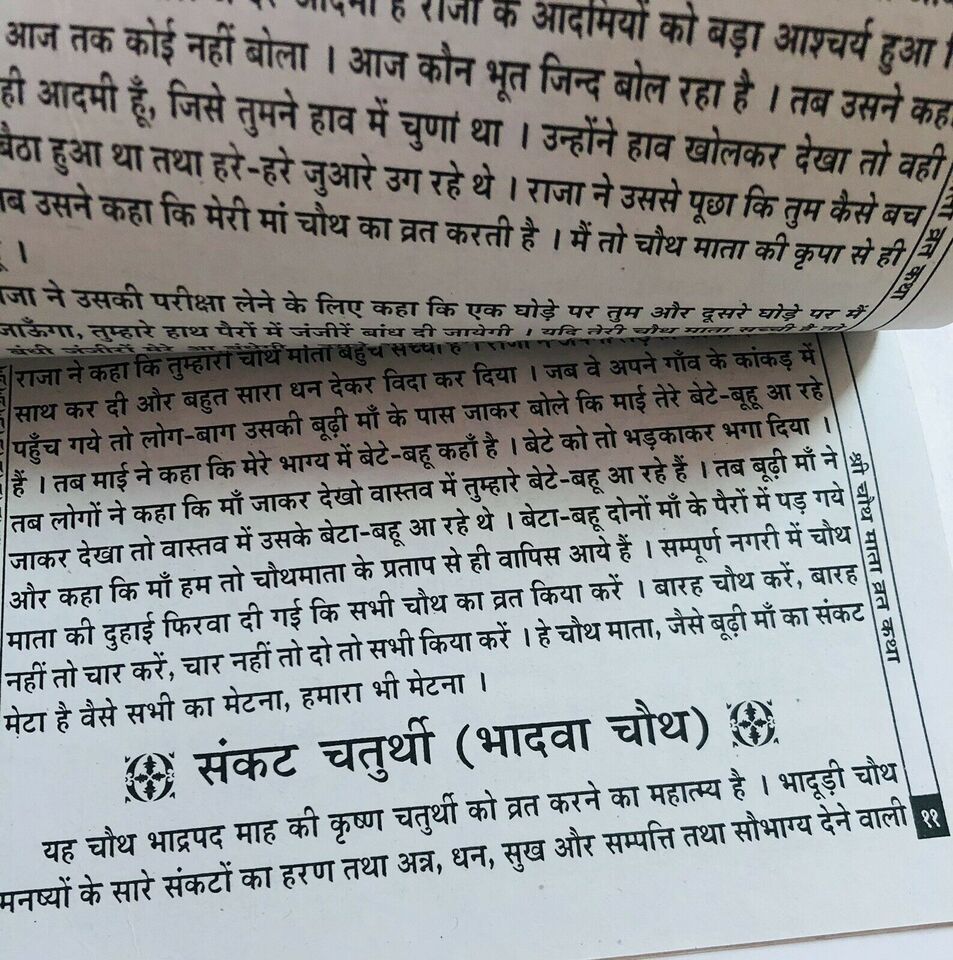 आदमी है राजा के आदमियों को बड़ा आश्चर्य हुआ
आज तक कोई नहीं बोला । आज कौन भूत जिन्द बोल रहा है । तब उसने कह
ही आदमी हूँ, जिसे तुमने हाव में चुणां था । उन्होंने हाव खोलकर देखा तो वही
बैठा हुआ था तथा हरे-हरे जुआरे उग रहे थे । राजा ने उससे पूछा कि तुम कैसे बच
ब उसने कहा कि मेरी मां चौथ का व्रत करती है । मैं तो चौथ माता की कृपा से ही
।
व्रत कथा
ाजा ने उसकी परीक्षा लेने के लिए कहा कि एक घोड़े पर तुम और दूसरे घोड़े पर मैं
जाऊँगा, तुम्हारे हाथ पैरों में जंजीरें बांध दी जायेगी । यदि तेरी चौथ माता सच्ची है तो
राजा ने कहा कि तुम्हारी चौथ माता बहुत सच्ची है ।
साथ कर दी और बहुत सारा धन देकर विदा कर दिया । जब वे अपने गाँव के कांकड़ में
पहुँच गये तो लोग-बाग उसकी बूढ़ी माँ के पास जाकर बोले कि माई तेरे बेटे-बूहू आ रहे
हैं । तब माई ने कहा कि मेरे भाग्य में बेटे-बहू कहाँ है । बेटे को तो भड़काकर भगा दिया ।
तब लोगों ने कहा कि माँ जाकर देखो वास्तव में तुम्हारे बेटे-बहू आ रहे हैं । तब बूढ़ी माँ ने
जाकर देखा तो वास्तव में उसके बेटा-बहू आ रहे थे । बेटा-बहू दोनों माँ के पैरों में पड़ गये
और कहा कि माँ हम तो चौथमाता के प्रताप से ही वापिस आये हैं । सम्पूर्ण नगरी में चौथ
माता की दुहाई फिरवा दी गई कि सभी चौथ का व्रत किया करें । बारह चौथ करें, बारह
नहीं तो चार करें, चार नहीं तो दो तो सभी किया करें । हे चौथ माता, जैसे बूढ़ी माँ का संकट
मेटा है वैसे सभी का मेटना, हमारा भी मेटना ।
श्री चौथ माता व्रत कथा
संकट चतुर्थी (भादवा चौथ)
यह चौथ भाद्रपद माह की कृष्ण चतुर्थी को व्रत करने का महात्म्य है । भादूड़ी चौथ
मनष्यों के सारे संकटों का हरण तथा अन्न, धन, सुख और सम्पत्ति तथा सौभाग्य देने वाली
११